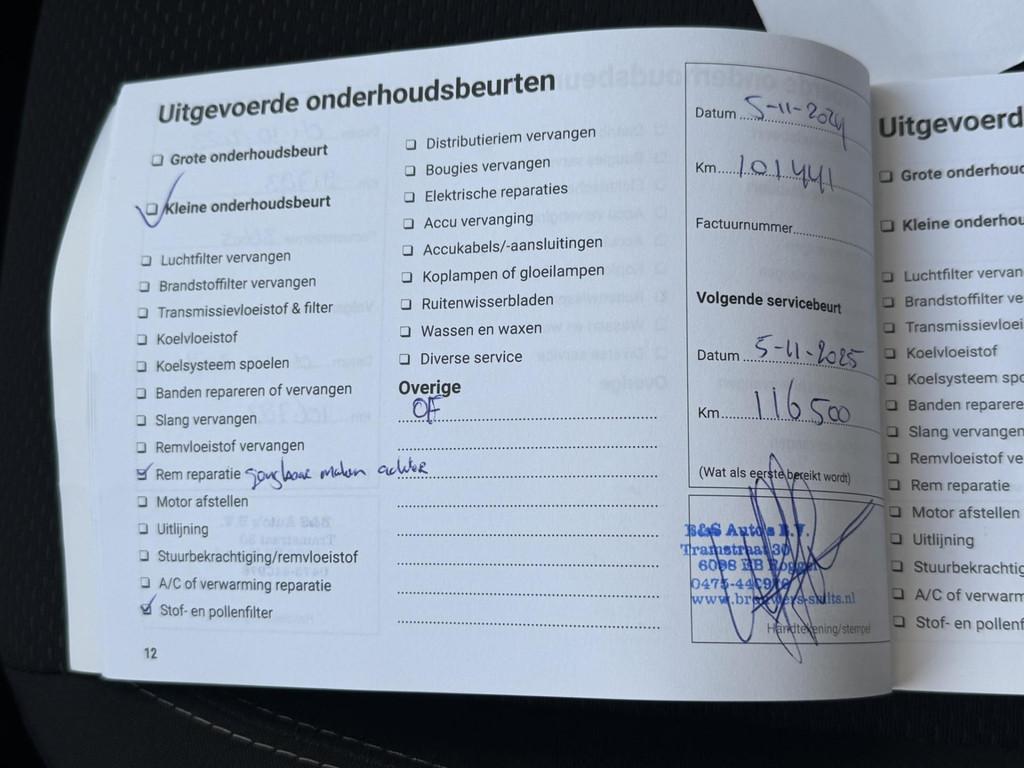 Uitgevoerde onderhoudsbeurten
Grote onderhoudsbeurt
Kleine onderhoudsbeurt
Luchtfilter vervangen
Brandstoffilter vervangen
Transmissievloeistof & filter
Koelvloeistof
Koelsysteem spoelen
Banden repareren of vervangen
Slang vervangen
Remvloeistof vervangen
Rem reparatie gangbaar maken achter
Motor afstellen
Uitlijning
Stuurbekrachtiging/remvloeistof
A/C of verwarming reparatie
Stof- en pollenfilter
12
Distributieriem vervangen
Bougies vervangen
Elektrische reparaties
Accu vervanging
Accukabels/-aansluitingen
Koplampen of gloeilampen
Ruitenwisserbladen
Wassen en waxen
Diverse service
Overige
OF
Datum 5-11-2024
Km 101441
Factuurnummer
Volgende servicebeurt
Datum 5-11-2025
Km 116500
(Wat als eerste bereikt wordt)
B&S Auto's B.V.
Tramstraat 30
6088 EB Roggel
0475-44
www.brouwers-smits.nl
Handtekening/stempel
Uitgevoerd
Grote onderhoud
Kleine onderhou
Luchtfilter vervan
Brandstoffilter ve
Transmissievloei
Koelvloeistof
Koelsysteem spo
Banden reparere
Slang vervangen
Remvloeistof ve
Rem reparatie
Motor afstellen
Uitlijning
Stuurbekrachtig
A/C of verwarm
Stof- en pollenf